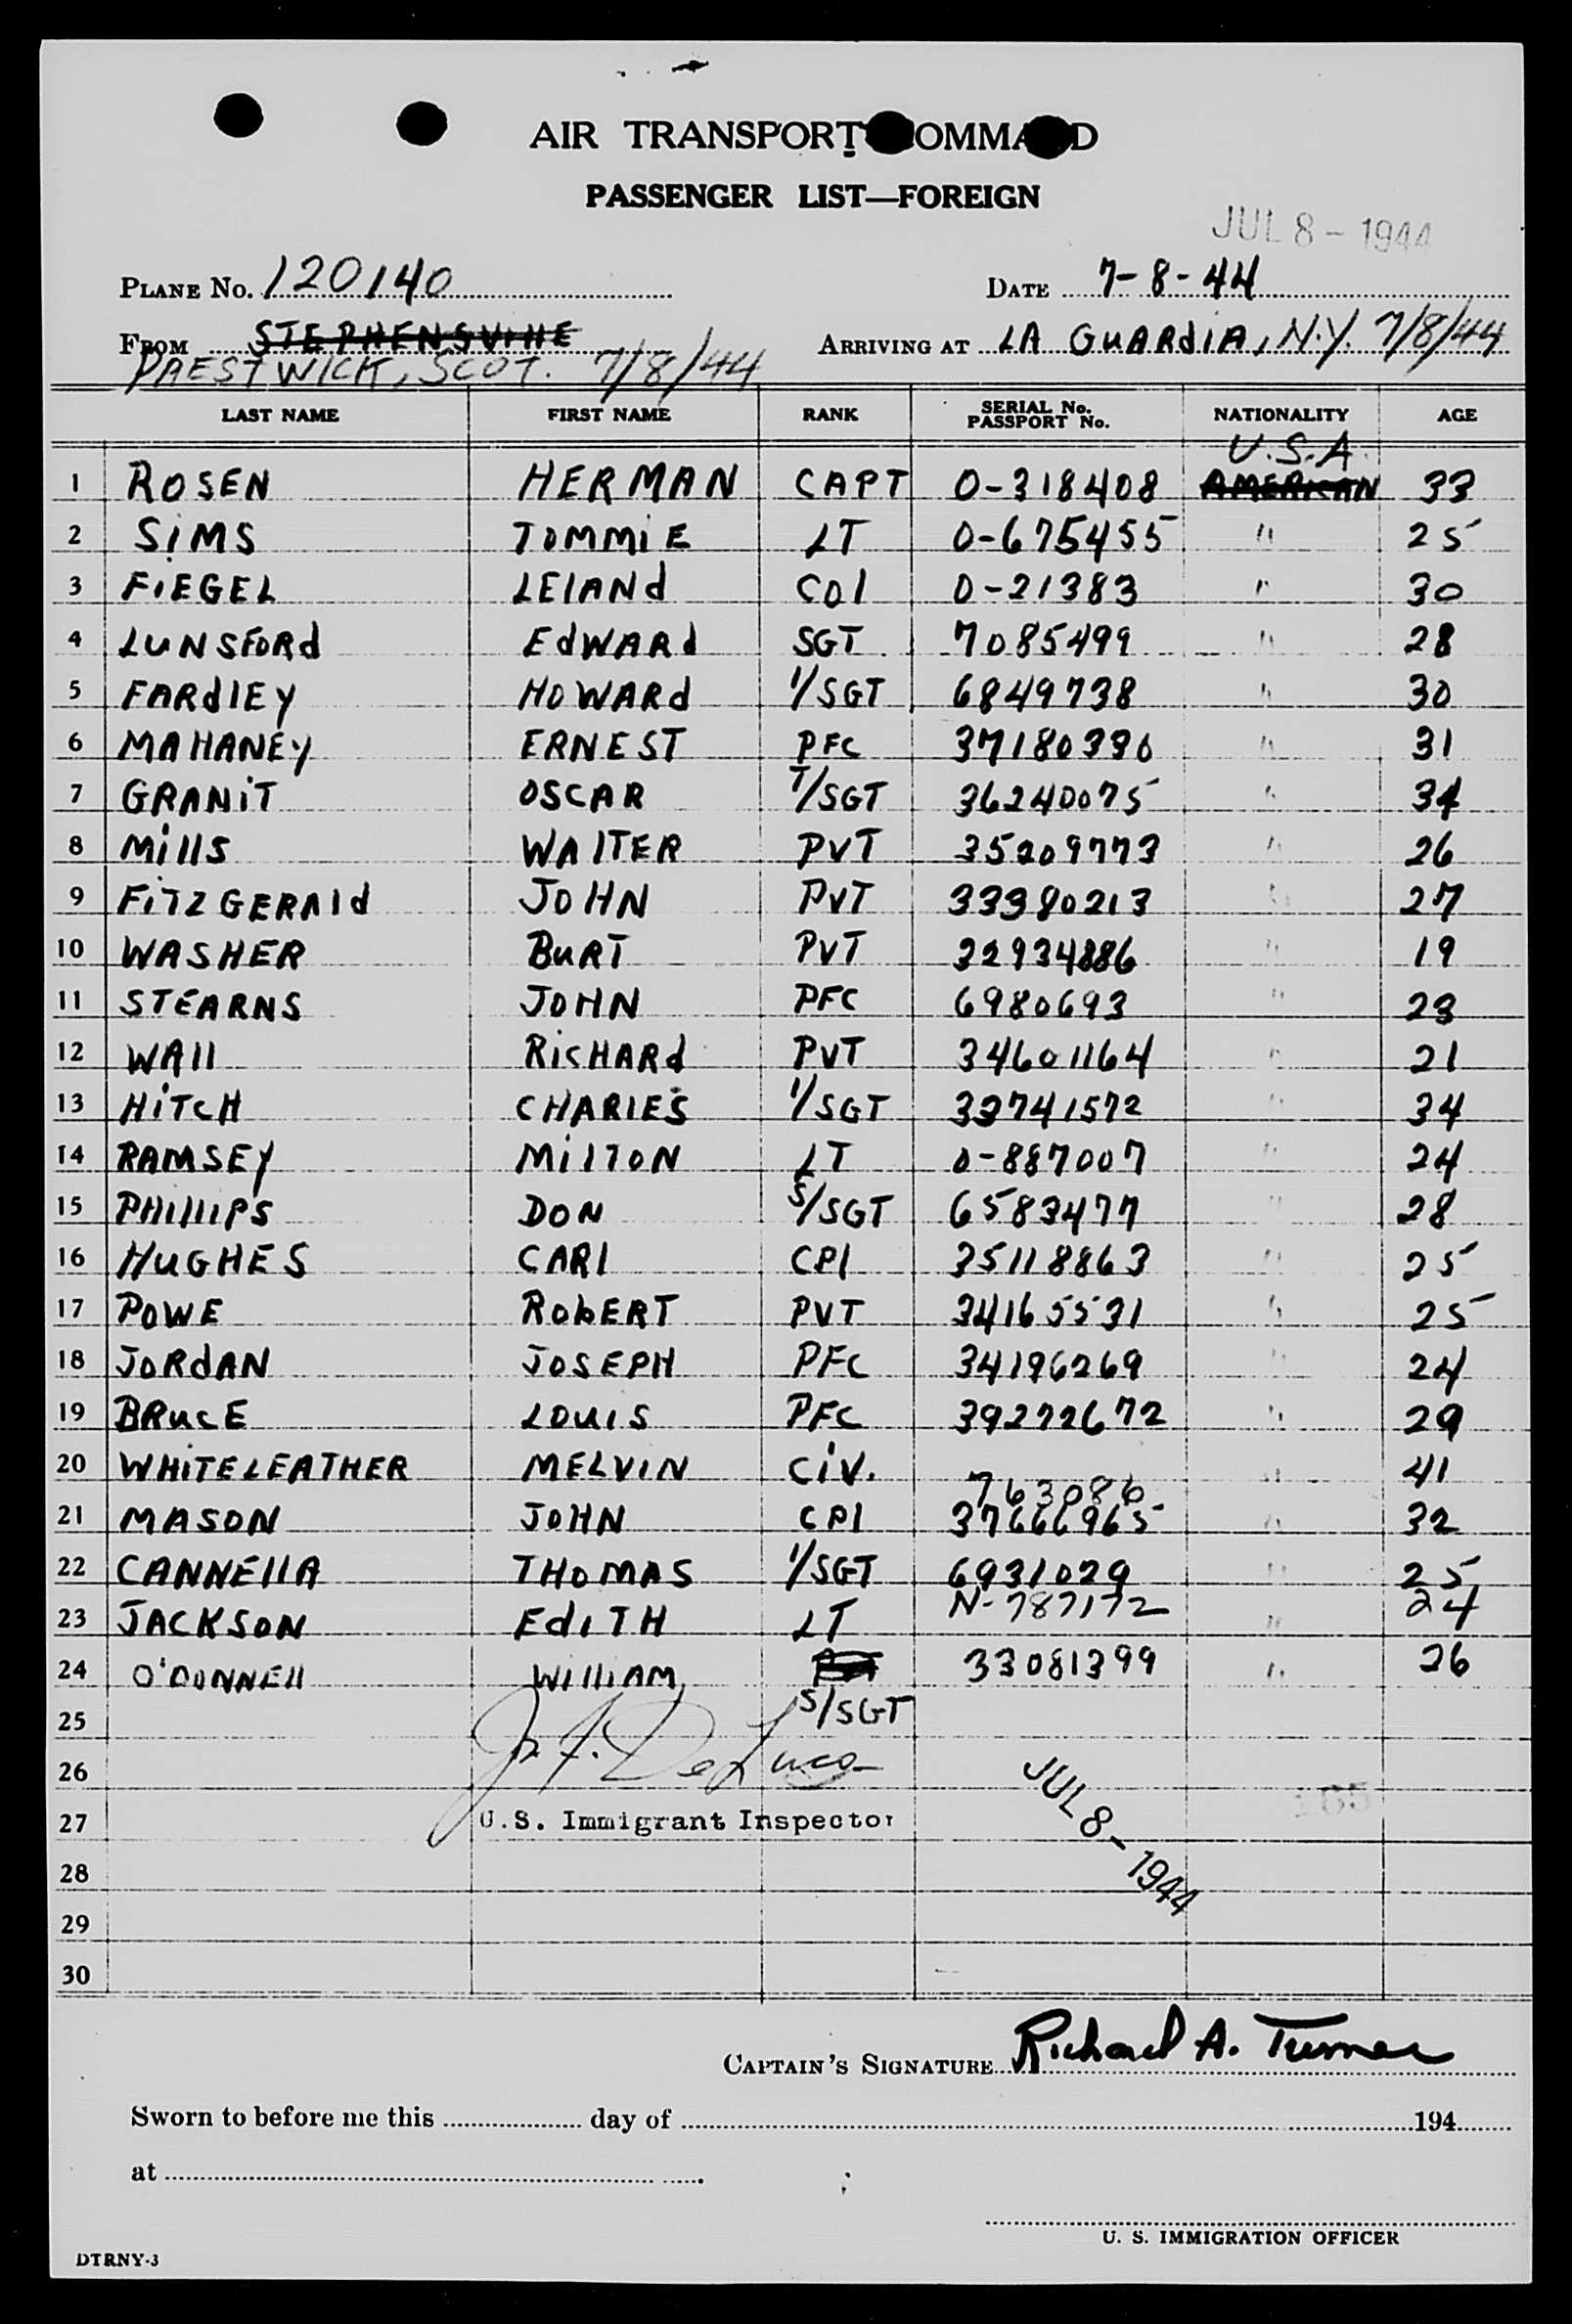 AIR TRANSPORT COMMAND
PASSENGER LIST—FOREIGN
JUL 8 - 1944
PLANE No. 120140 DATE 7-8-44
FROM STEPHENSVIllE ARRIVING AT LA GUARdIA, N.Y. 7/8/44
PRESTWICK, SCOT. 7/8/44
LAST NAME FIRST NAME RANK SERIAL No. PASSPORT No. NATIONALITY AGE
U.S.A.
1 ROSEN HERMAN CAPT O-318408 AMERICAN 33
2 SiMS TOMMiE LT O-675455 " 25
3 FiEGEL LElANd COl O-21383 " 30
4 LUNSFORd EdWARd SGT 7085499 " 28
5 FARdlEy HOWARd 1/SGT 6849738 " 30
6 MAHANEy ERNEST PFC 37180330 " 31
7 GRANiT OSCAR T/SGT 36240075 " 34
8 Mills WAlTER PVT 35209773 " 26
9 FiTZGERAld JOHN PVT 33380213 " 27
10 WASHER BURT PVT 32934886 " 19
11 STEARNS JOHN PFC 6980693 " 23
12 WAll RiCHARd PVT 34601164 " 21
13 HiTCH CHARlES 1/SGT 33741572 " 34
14 RAMSEy MilTON LT O-887007 " 24
15 PHIllIPS DON S/SGT 6583477 " 28
16 HUGHES CARl CPl 35118863 " 25
17 POWE RObERT PVT 34165531 " 25
18 JORdAN JOSEPH PFC 34196269 " 24
19 BRUCE LOUIS PFC 39272672 " 29
20 WHiTELEATHER MELVIN CiV. 763086 " 41
21 MASON JOHN CPl 37666965 " 32
22 CANNEllA THOMAS 1/SGT 6931029 " 25
23 JACKSON EdITH LT N-787172 " 24
24 O'DONNEll WIllIAM 33081399 " 26
25 S/SGT
26 J. F. DeLuca
27 U.S. Immigrant Inspector JUL 8 - 1944 165
28
29
30
CAPTAIN'S SIGNATURE Richard A. Turner
Sworn to before me this day of 194
at
U. S. IMMIGRATION OFFICER
DTRNY-3